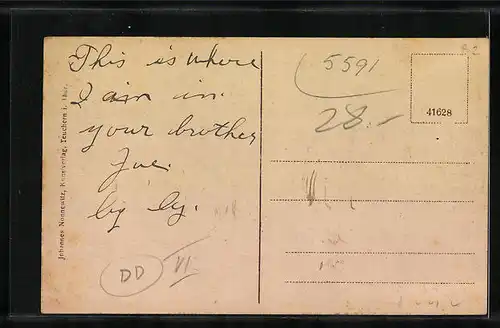 This is where
I am in.
your brother
Joe.
by by.
5591
28.-
41628
DD
VI
Johannes Nonnewitz, Kunstverlag, Teuchern i. Thür.